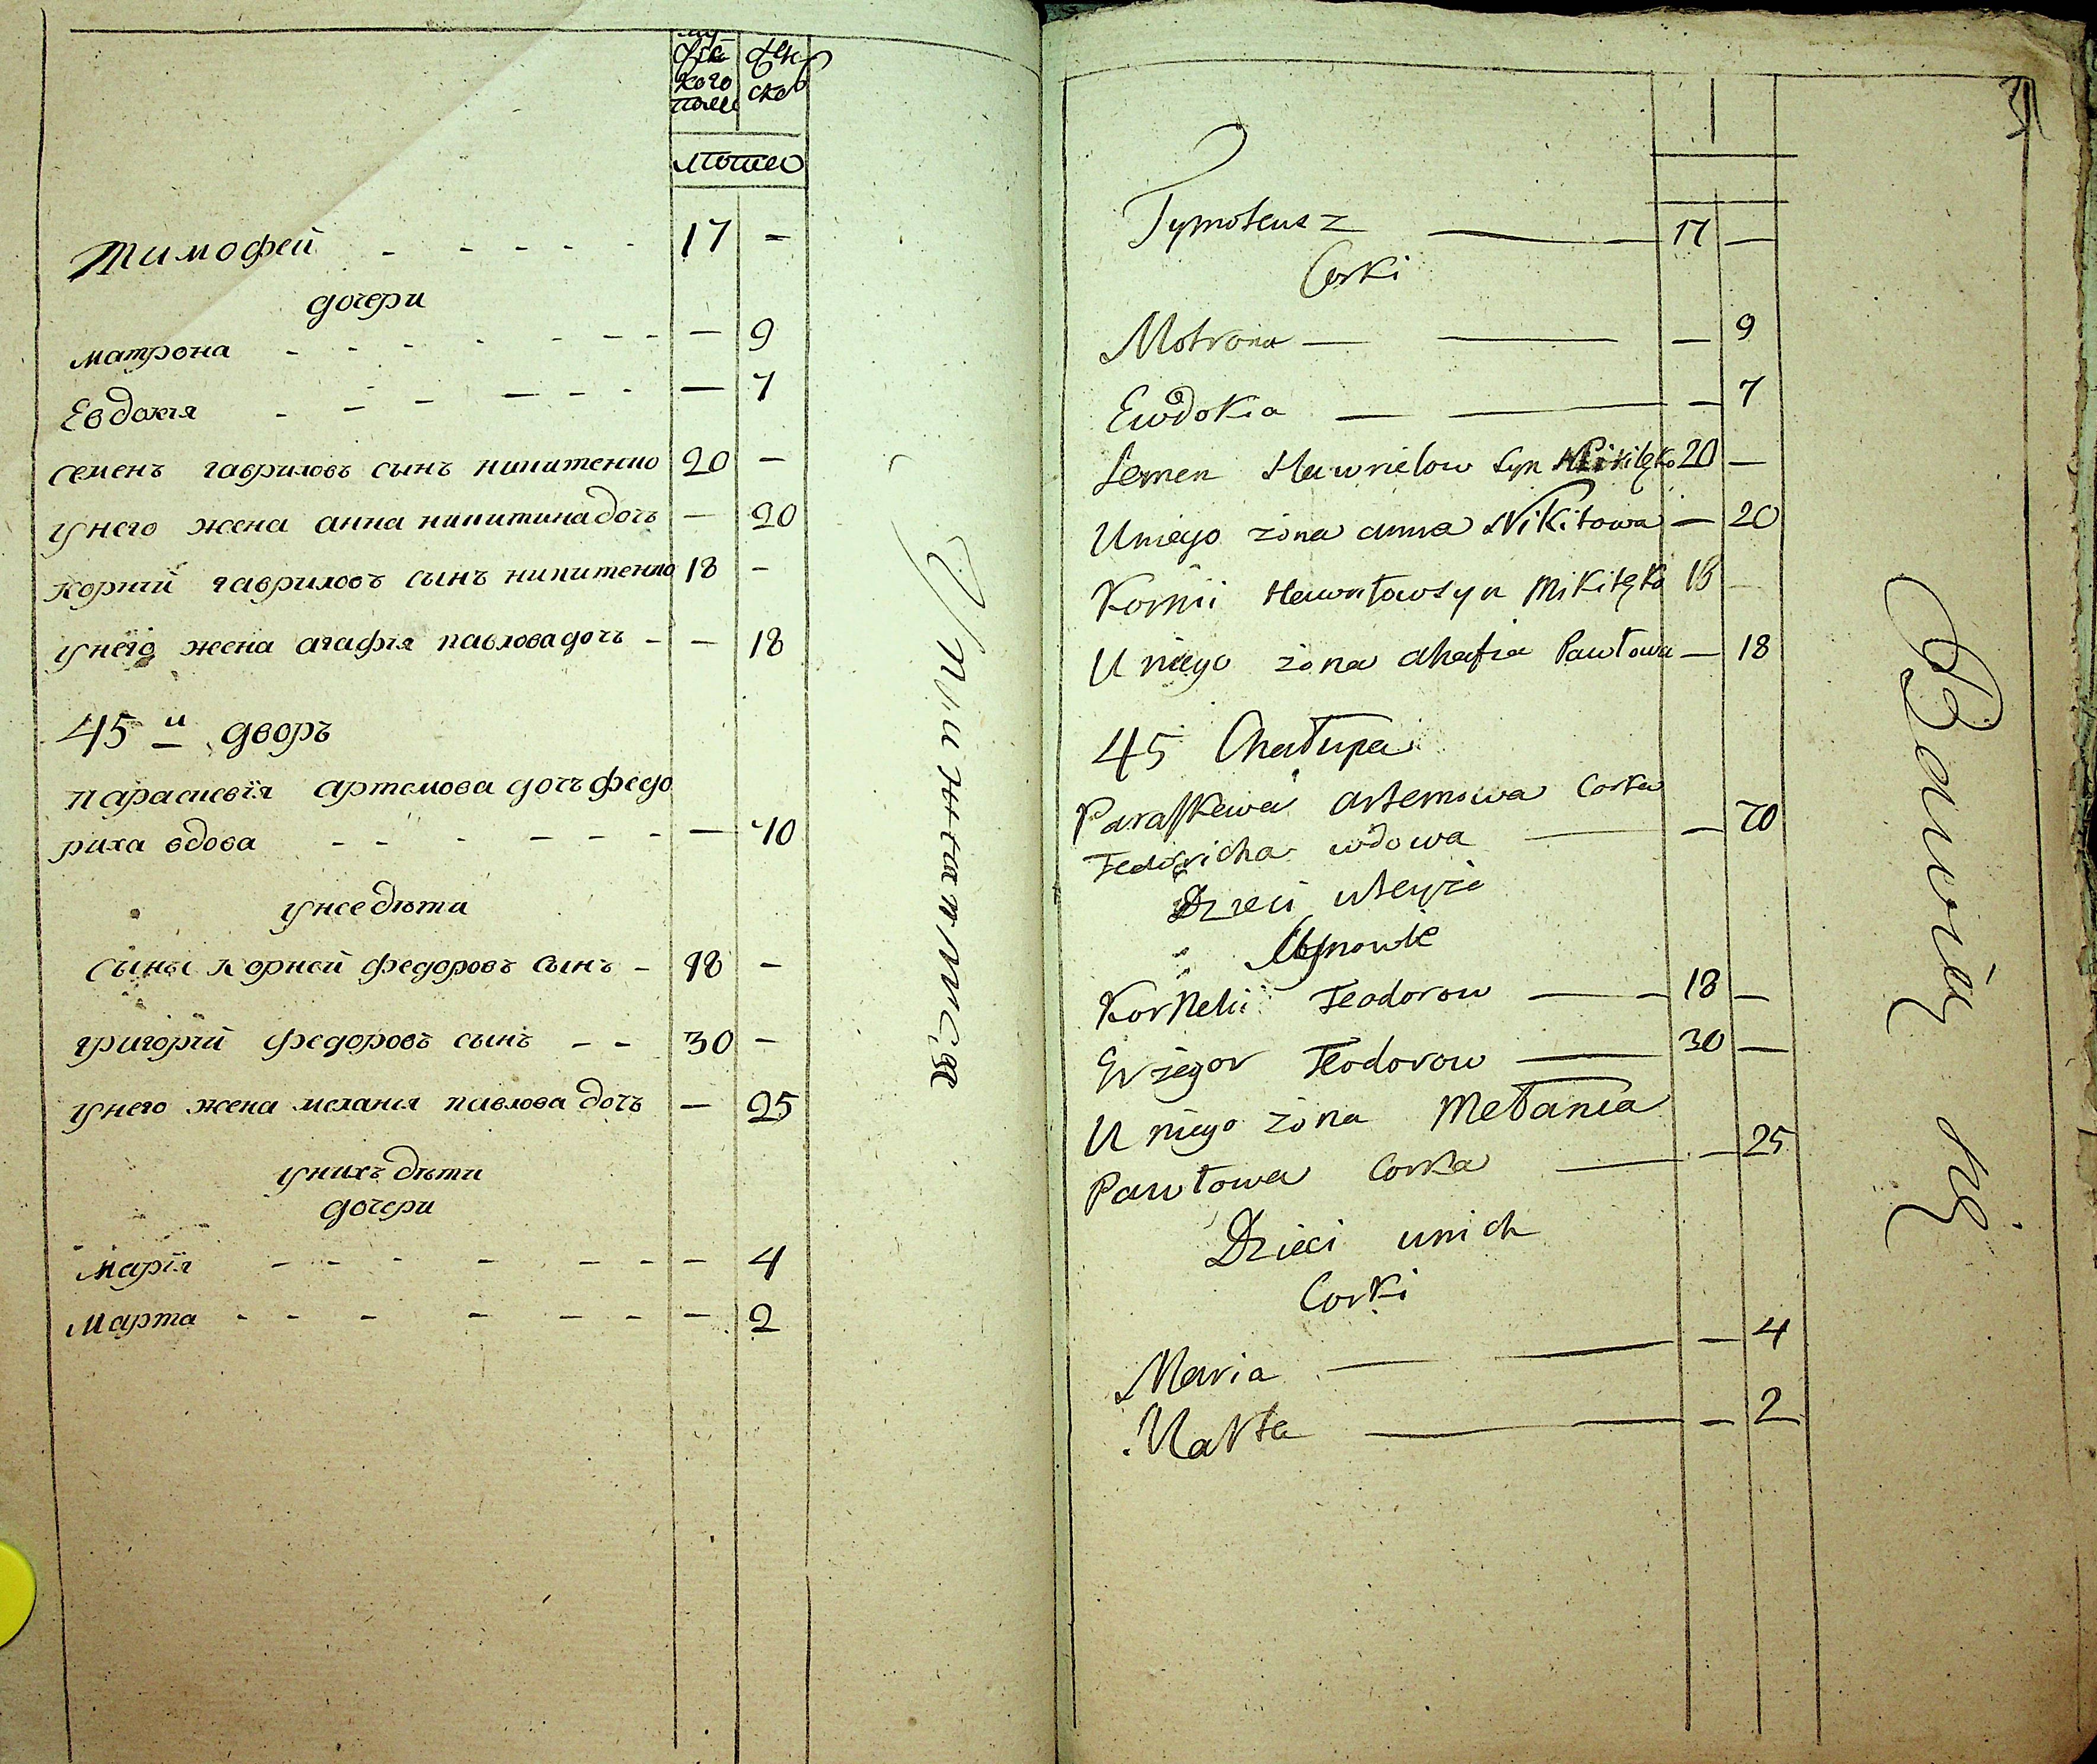 муж
ска
кого
полу
жен
ско
толко
Тимофей - - - - - 17 -
дочери
матрона - - - - - - - — 9
Евдокия - - - - - - — 7
семенъ гавриловъ сынъ никитенко 20 -
у него жена анна никитина дочь — 20
корнии гавриловъ сынъ никитенко 18 -
у него жена агафия павлова дочь - — 18
45 и дворъ
парасиевїя артемова дочь федо
риха вдова - - - - - - — 70
у нее дѣти
сыны корней федоровъ сынъ - 18 -
григории федоровъ сынъ - - 30 -
у него жена мелания павлова дочь — 25
у нихъ дѣти
дочери
Марїя - - - - - - - - 4
Марта - - - - - - - 2
31
Tymoteusz — 17 —
Corki
Motrona — — — 9
Ewdokia — — — 7
Semen Hawrielow Syn Mikitęko 20 —
U niego żona anna Nikitowa — 20
Kornii Hawrłow syn Mikitęko 18 —
U niego żona ahafia Pawłowa — 18
45 Chałupa
Paraſkewa artemowa Corka
Fedoricha wdowa — — 70
Dzieci uteyże
Synowie
Kornelii Teodorow — 18 —
Grzegor Teodorow — 30 —
U niego żona Mełania
Pawłowa Corka — — 25
Dzieci unich
Corki
Maria — — — 4
Marta — — — 2